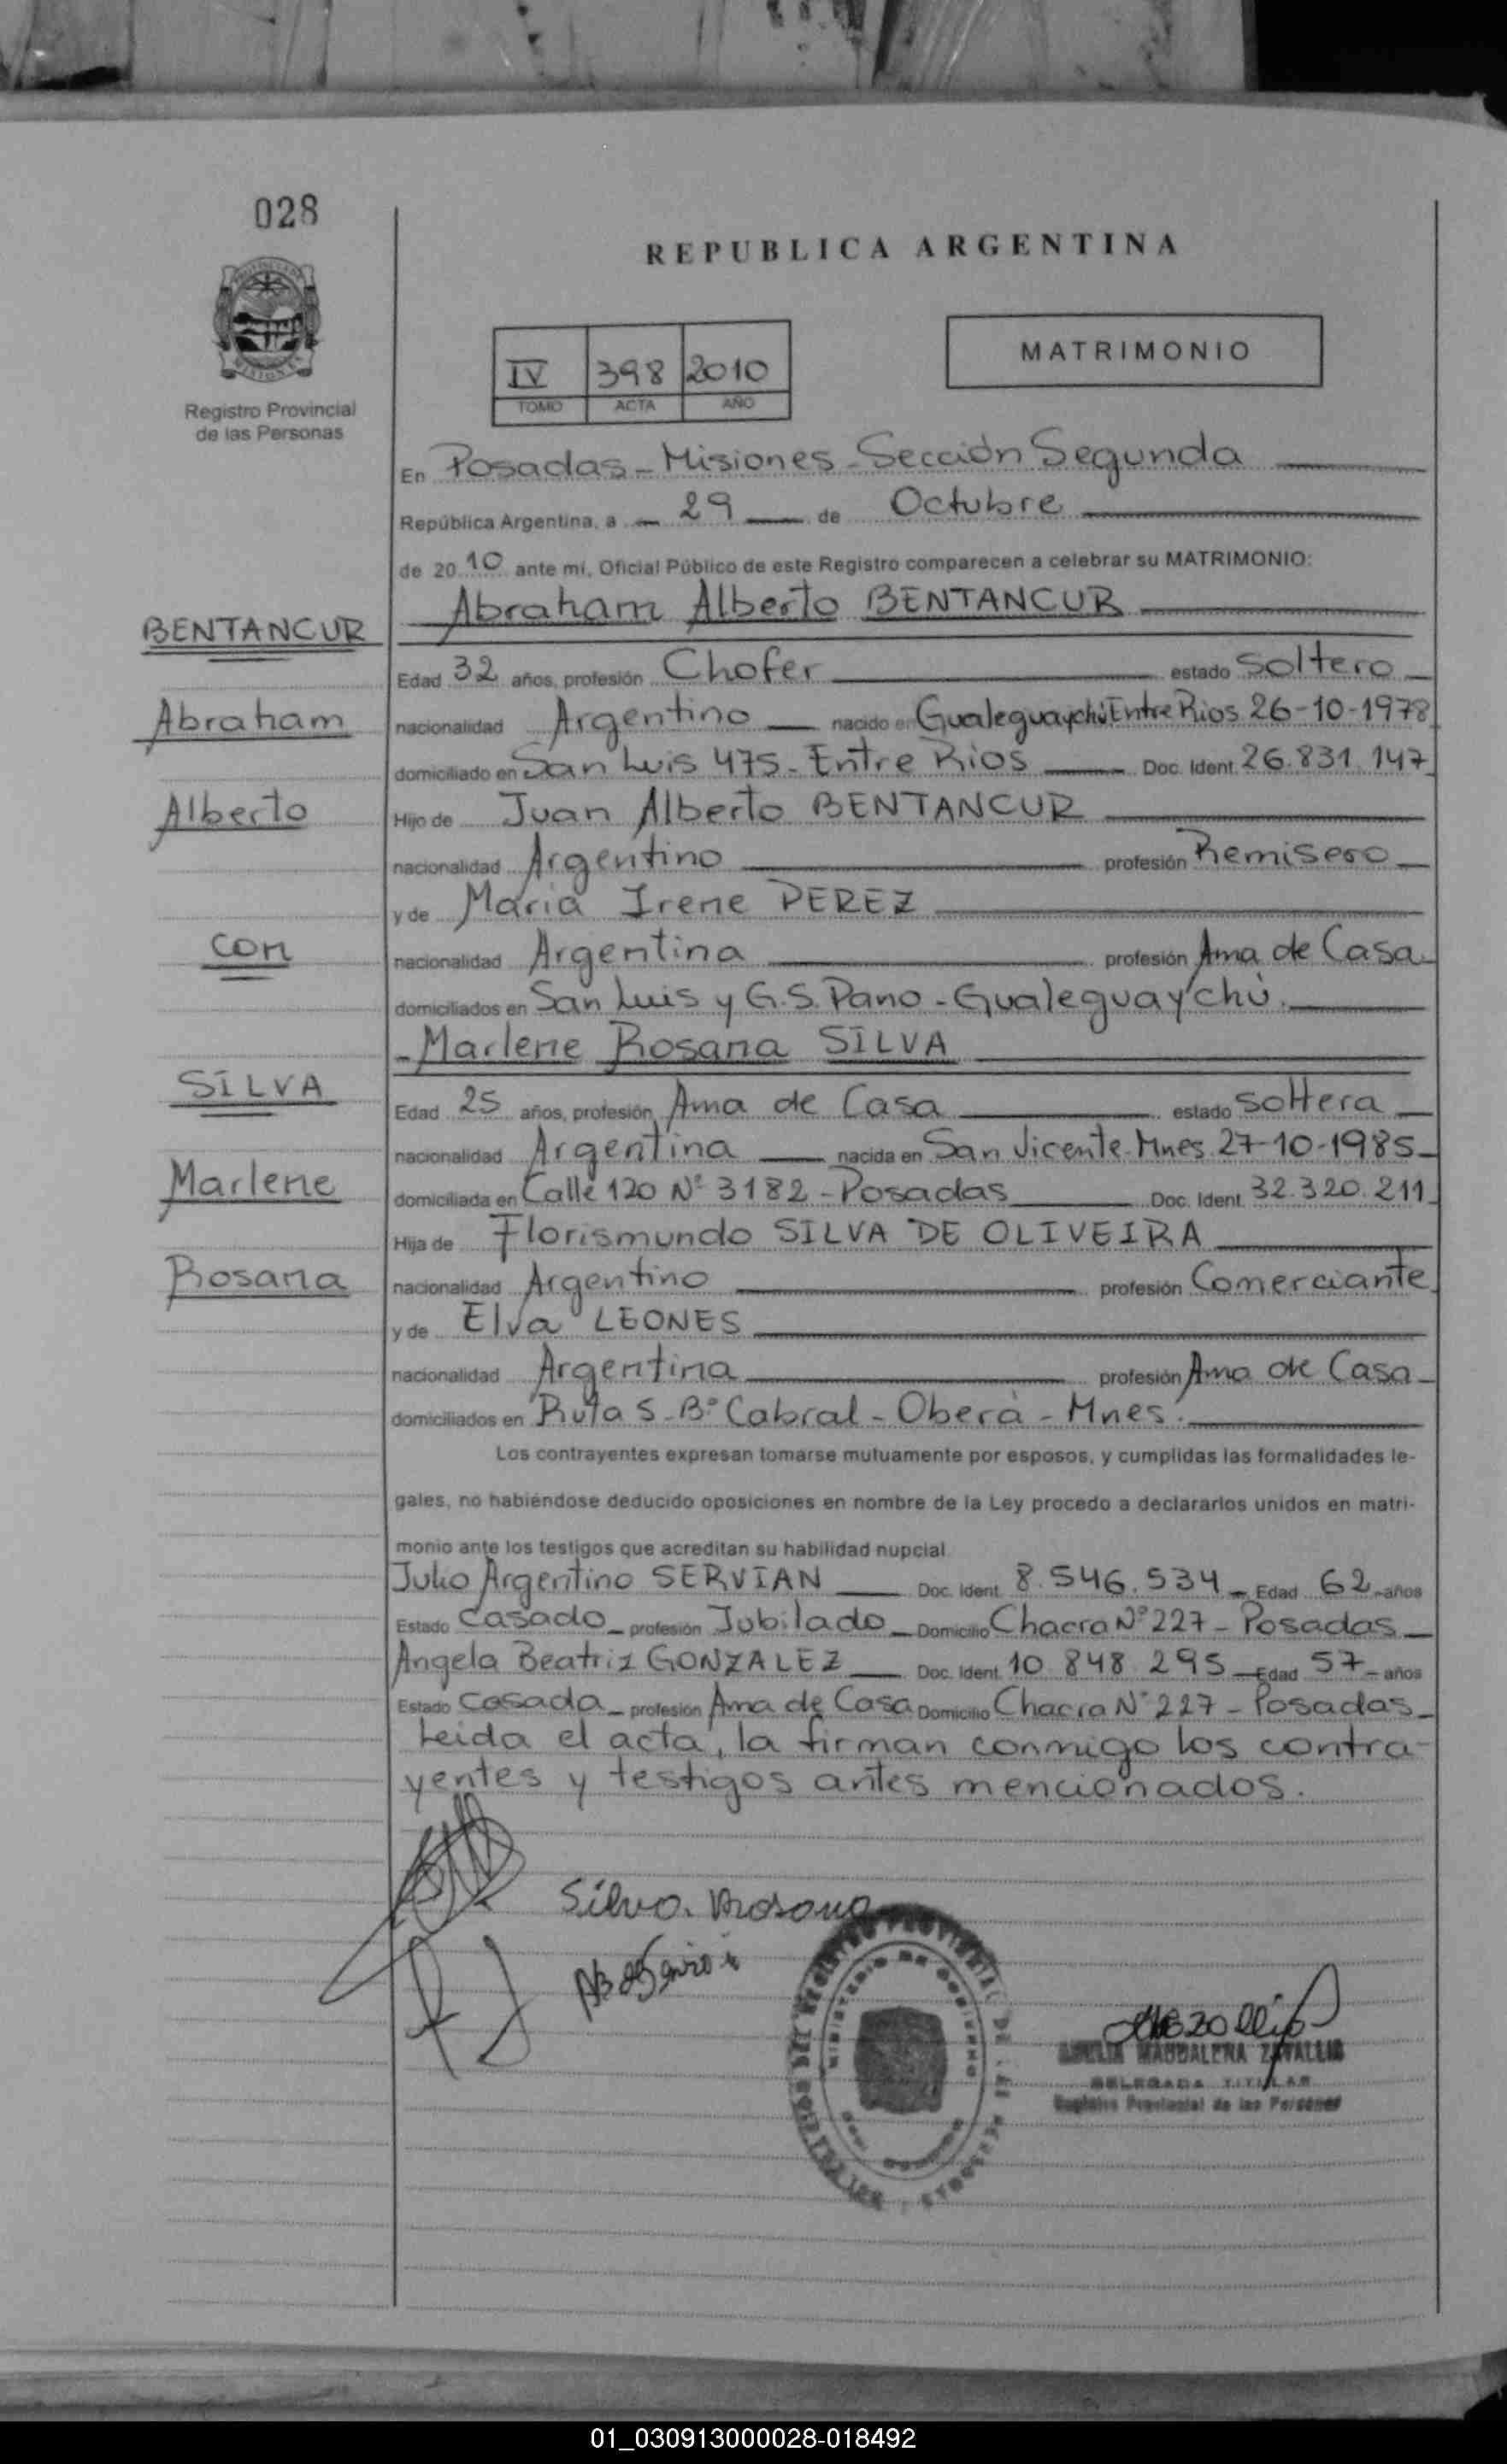 028
REPUBLICA ARGENTINA
MATRIMONIO
IV 398 2010
TOMO ACTA AÑO
Registro Provincial
de las Personas
En Posadas - Misiones - Sección Segunda
República Argentina, a 29 de Octubre
de 2010 ante mi, Oficial Público de este Registro comparecen a celebrar su MATRIMONIO:
Abraham Alberto BENTANCUR
BENTANCUR
Edad 32 años, profesión Chofer estado Soltero
Abraham
nacionalidad Argentino nacido en Gualeguaychú Entre Rios 26-10-1978
domiciliado en San Luis 475 - Entre Rios Doc. Ident. 26.831.147
Alberto
Hijo de Juan Alberto BENTANCUR
nacionalidad Argentino profesión Remisero
y de Maria Irene PEREZ
con
nacionalidad Argentina profesión Ama de Casa
domiciliados en San Luis y G.S. Pano - Gualeguaychú.
Marlene Rosana SILVA
SILVA
Edad 25 años, profesión Ama de Casa estado Soltera
nacionalidad Argentina nacida en San Vicente - Mnes 27-10-1985
Marlene
domiciliada en Calle 120 Nº 3182 - Posadas Doc. Ident. 32.320.211
Hija de Florismundo SILVA DE OLIVEIRA
Rosana
nacionalidad Argentino profesión Comerciante
y de Elva LEONES
nacionalidad Argentina profesión Ama de Casa
domiciliados en Ruta 5 - Bº Cabral - Oberá - Mnes.
Los contrayentes expresan tomarse mutuamente por esposos, y cumplidas las formalidades le-
gales, no habiéndose deducido oposiciones en nombre de la Ley procedo a declararlos unidos en matri-
monio ante los testigos que acreditan su habilidad nupcial
Julio Argentino SERVIAN Doc. Ident. 8.546.534 Edad 62 años
Estado Casado profesión Jubilado Domicilio Chacra Nº 227 - Posadas
Angela Beatriz GONZALEZ Doc. Ident. 10.848.295 Edad 57 años
Estado Casada profesión Ama de Casa Domicilio Chacra Nº 227 - Posadas
Leida el acta, la firman conmigo los contra-
yentes y testigos antes mencionados.
Silva. Rosana
MAGDALENA ZAVALLIS
DELEGADA TITULAR
Registro Provincial de las Personas
01_030913000028-018492